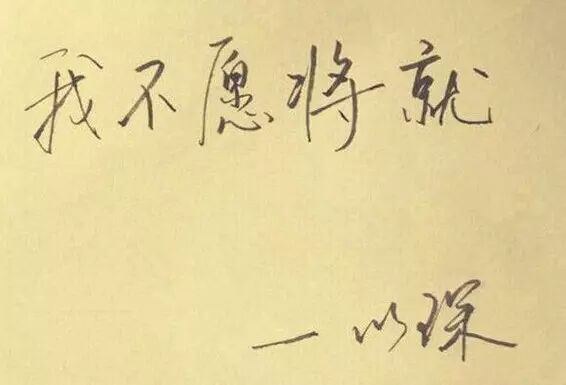 我不愿将就
— 以琛